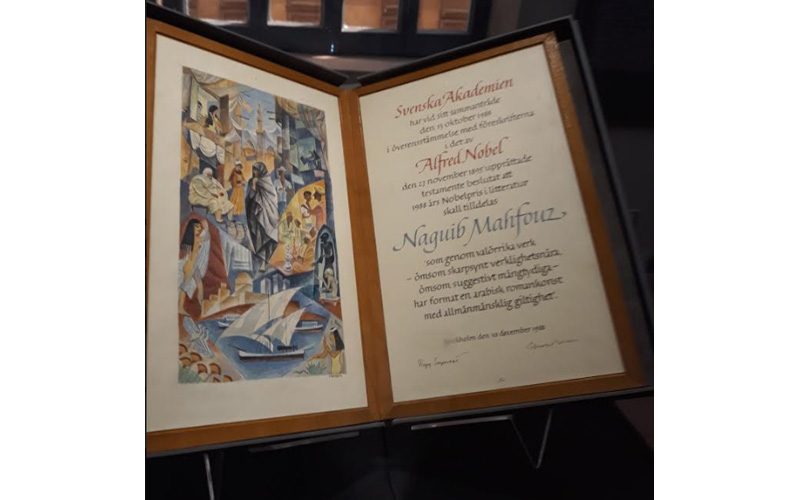 Svenska Akademien
har vid sitt sammanträde
den 13 oktober 1988
i överensstämmelse med föreskrifterna
i det av
Alfred Nobel
den 27 november 1895 upprättade
testamente beslutat att
1988 års Nobelpris i litteratur
skall tilldelas
Naguib Mahfouz
som genom valörrika verk
– ömsom skarpsynt verklighetsnära,
ömsom suggestivt mångtydiga –
har format en arabisk romankonst
med allmänmänsklig giltighet.
den 10 december 1988